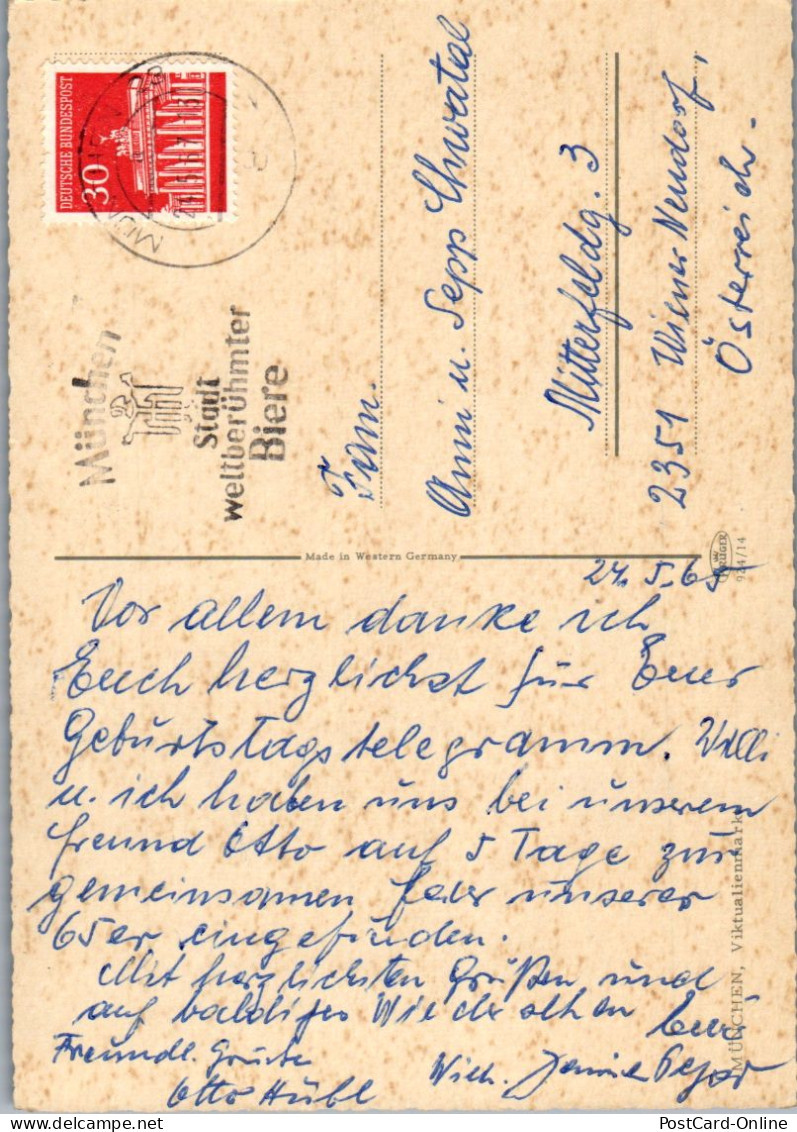 DEUTSCHE BUNDESPOST
30
München
Stadt
weltberühmter
Biere
Fam.
Anni u. Sepp Chwatal
Mitterfeldg. 3
2351 Wiener Neudorf,
Österreich.
Made in Western Germany
KRÜGER
924/14
MÜNCHEN, Viktualienmarkt
24. 5. 69
Vor allem danke ich
Euch herzlichst für Euer
Geburtstagstelegramm. Willi
u. ich haben uns bei unserem
Freund Otto auf 5 Tage zur
gemeinsamen Feier unserer
65er eingefunden.
Mit herzlichsten Grüßen und
auf baldiges Wiedersehen
Euer
Freundl. Grüße
Otto Hübl
PostCard-Online